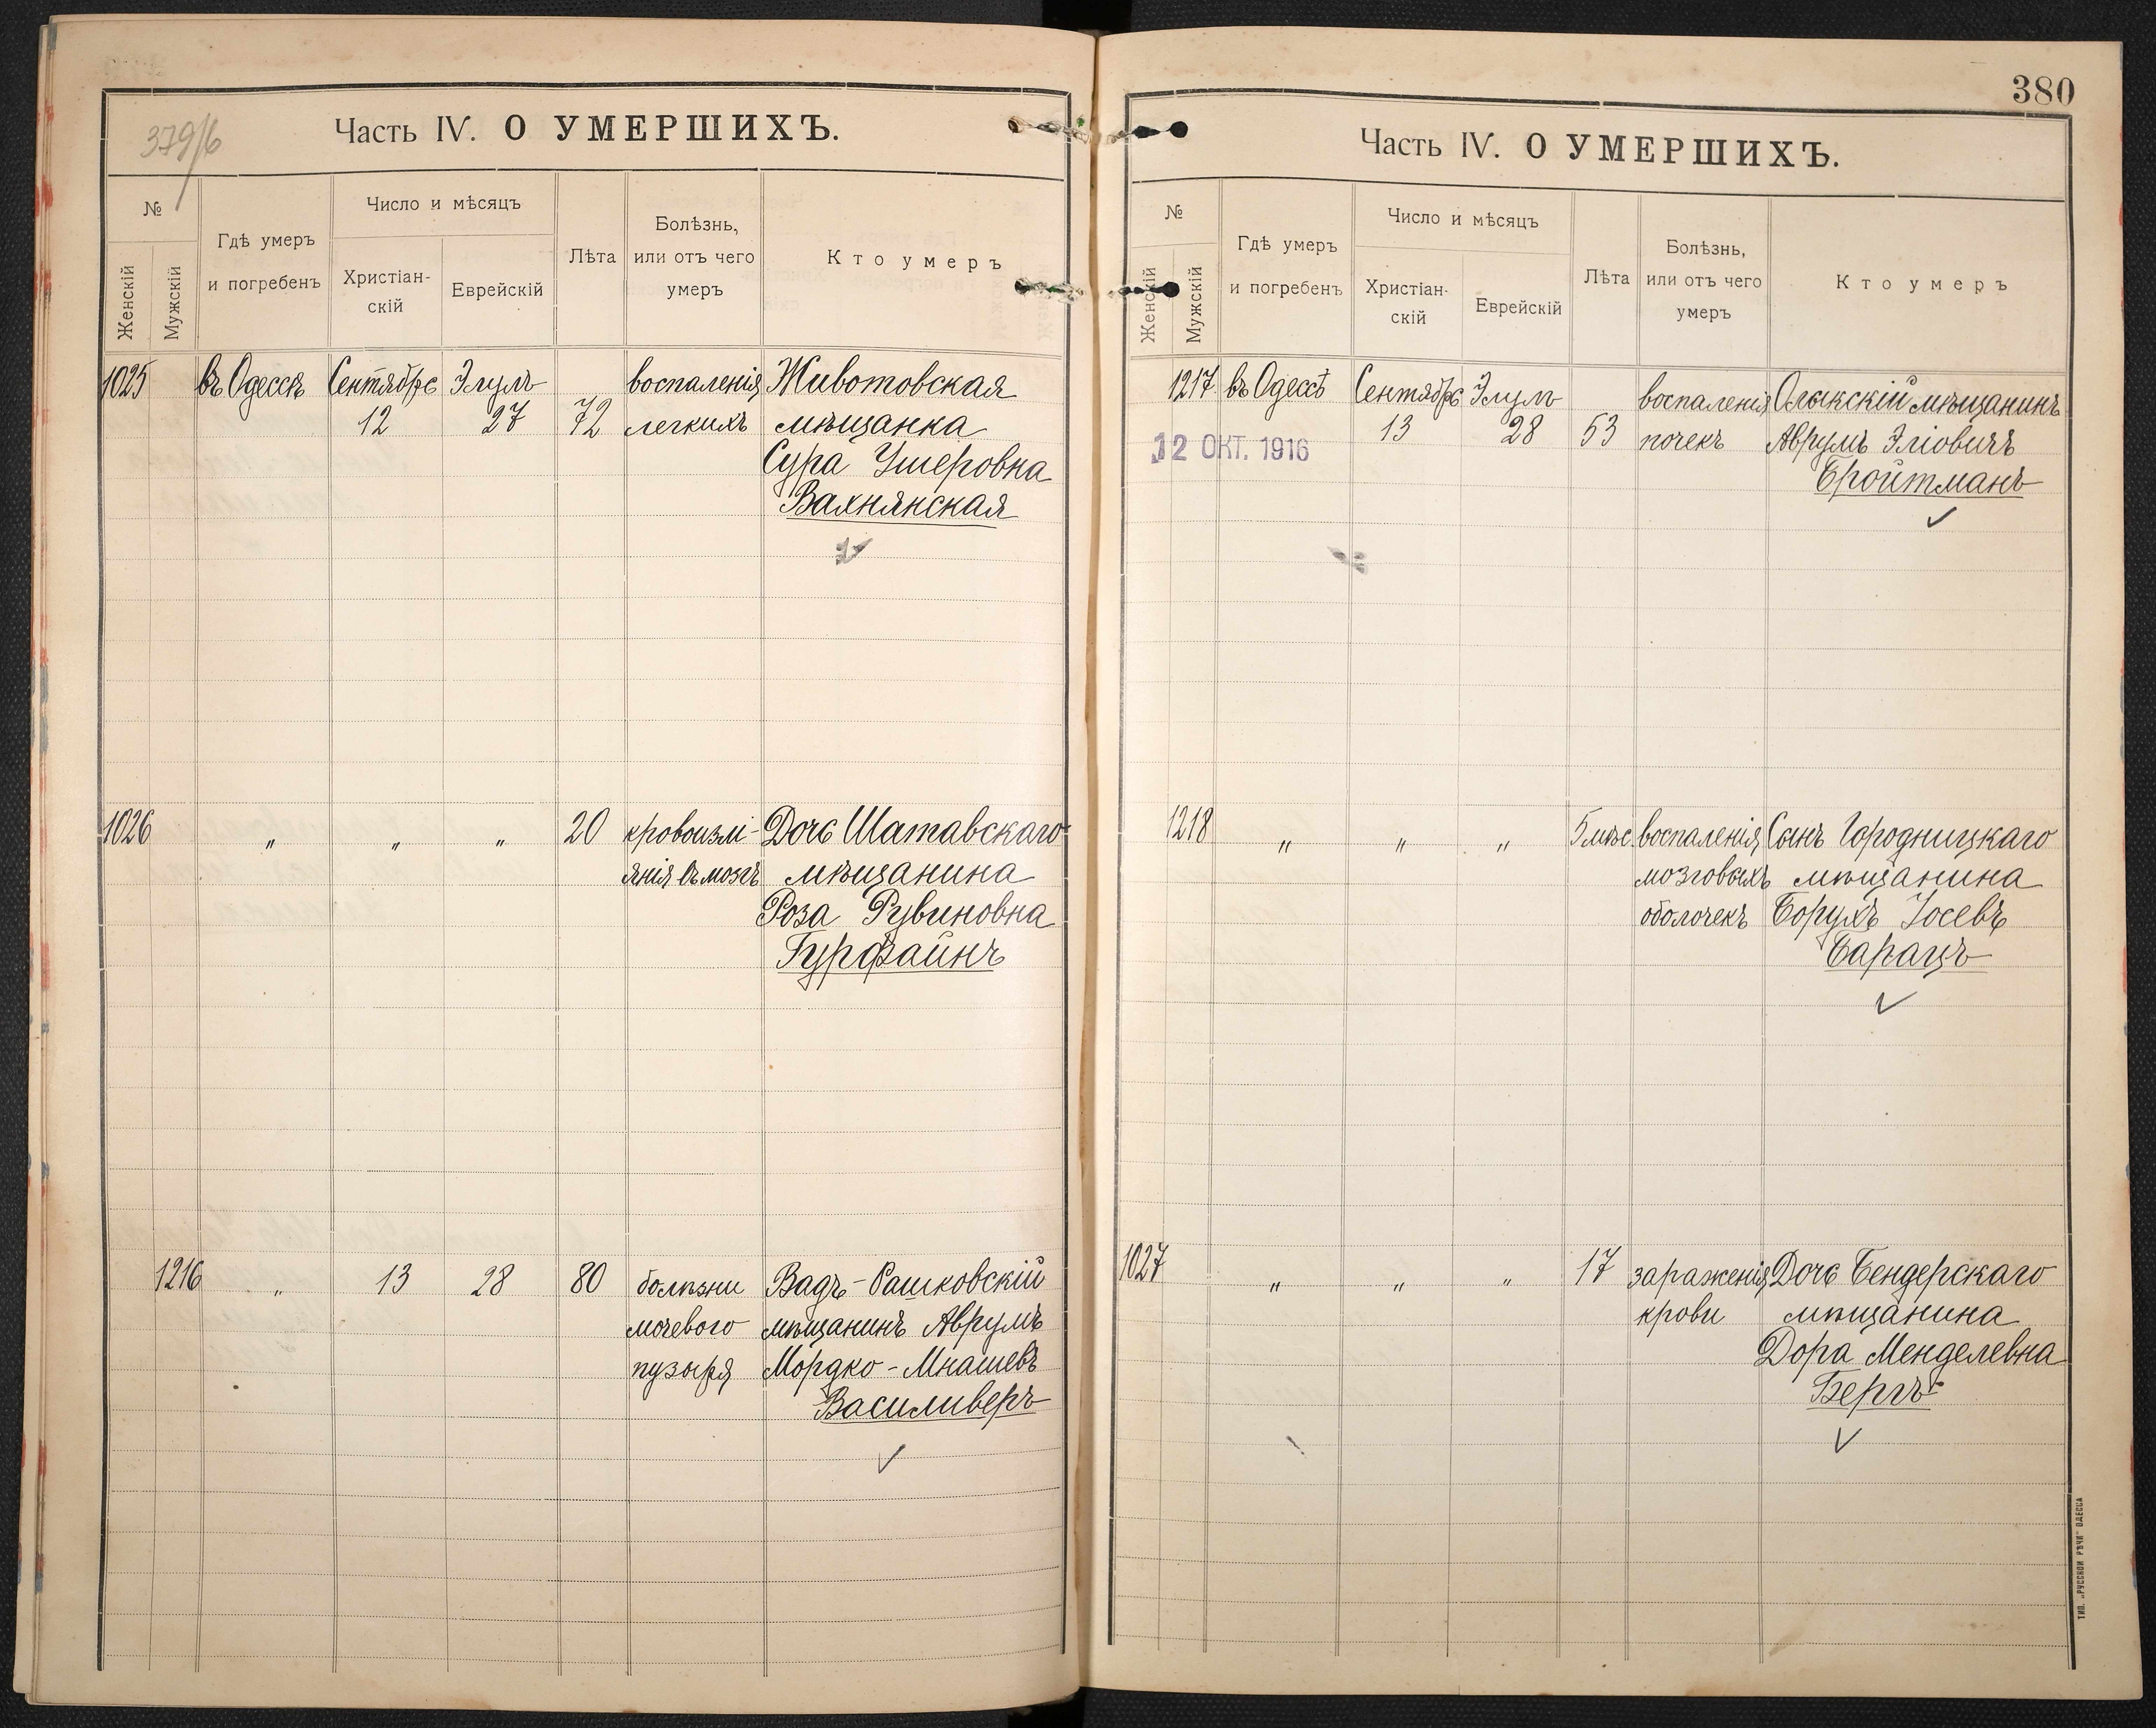 379/6
Часть IV. О УМЕРШИХЪ.
№
Женскій
Мужскій
Гдѣ умеръ
и погребенъ
Число и мѣсяцъ
Христіан-
скій
Еврейскій
Лѣта
Болѣзнь,
или отъ чего
умеръ
Кто умеръ
1025 въ Одессѣ Сентября Элулъ воспаленія Животовская
12 27 72 легкихъ мѣщанка
Сура Ушеровна
Вахнянская
1026 " " " 20 кровоизлі- Дочь Шатавскаго
янія въ мозгъ мѣщанина
Роза Рувиновна
Гурфайнъ
1216 " 13 28 80 болѣзни Вадъ-Рашковскій
мочевого мѣщанинъ Аврумъ
пузыря Мордко-Мнашевъ
Василиверъ
380
Часть IV. О УМЕРШИХЪ.
№
Женскій
Мужскій
Гдѣ умеръ
и погребенъ
Число и мѣсяцъ
Христіан-
скій
Еврейскій
Лѣта
Болѣзнь,
или отъ чего
умеръ
Кто умеръ
1217 въ Одессѣ Сентября Элулъ воспаленія мѣщанинъ
13 28 53 почекъ Аврумъ Эліовичъ
12 ОКТ. 1916
Бройтманъ
1218 " " " 5 мѣс. воспаленія Сынъ Городницкаго
мозговыхъ мѣщанина
оболочекъ Борухъ Іосевъ
Барацъ
1027 " " " 17 зараженія Дочь Бендерскаго
крови мѣщанина
Дора Менделевна
Бергъ
ТИП. „РУССКОЙ РѢЧИ" ОДЕССА